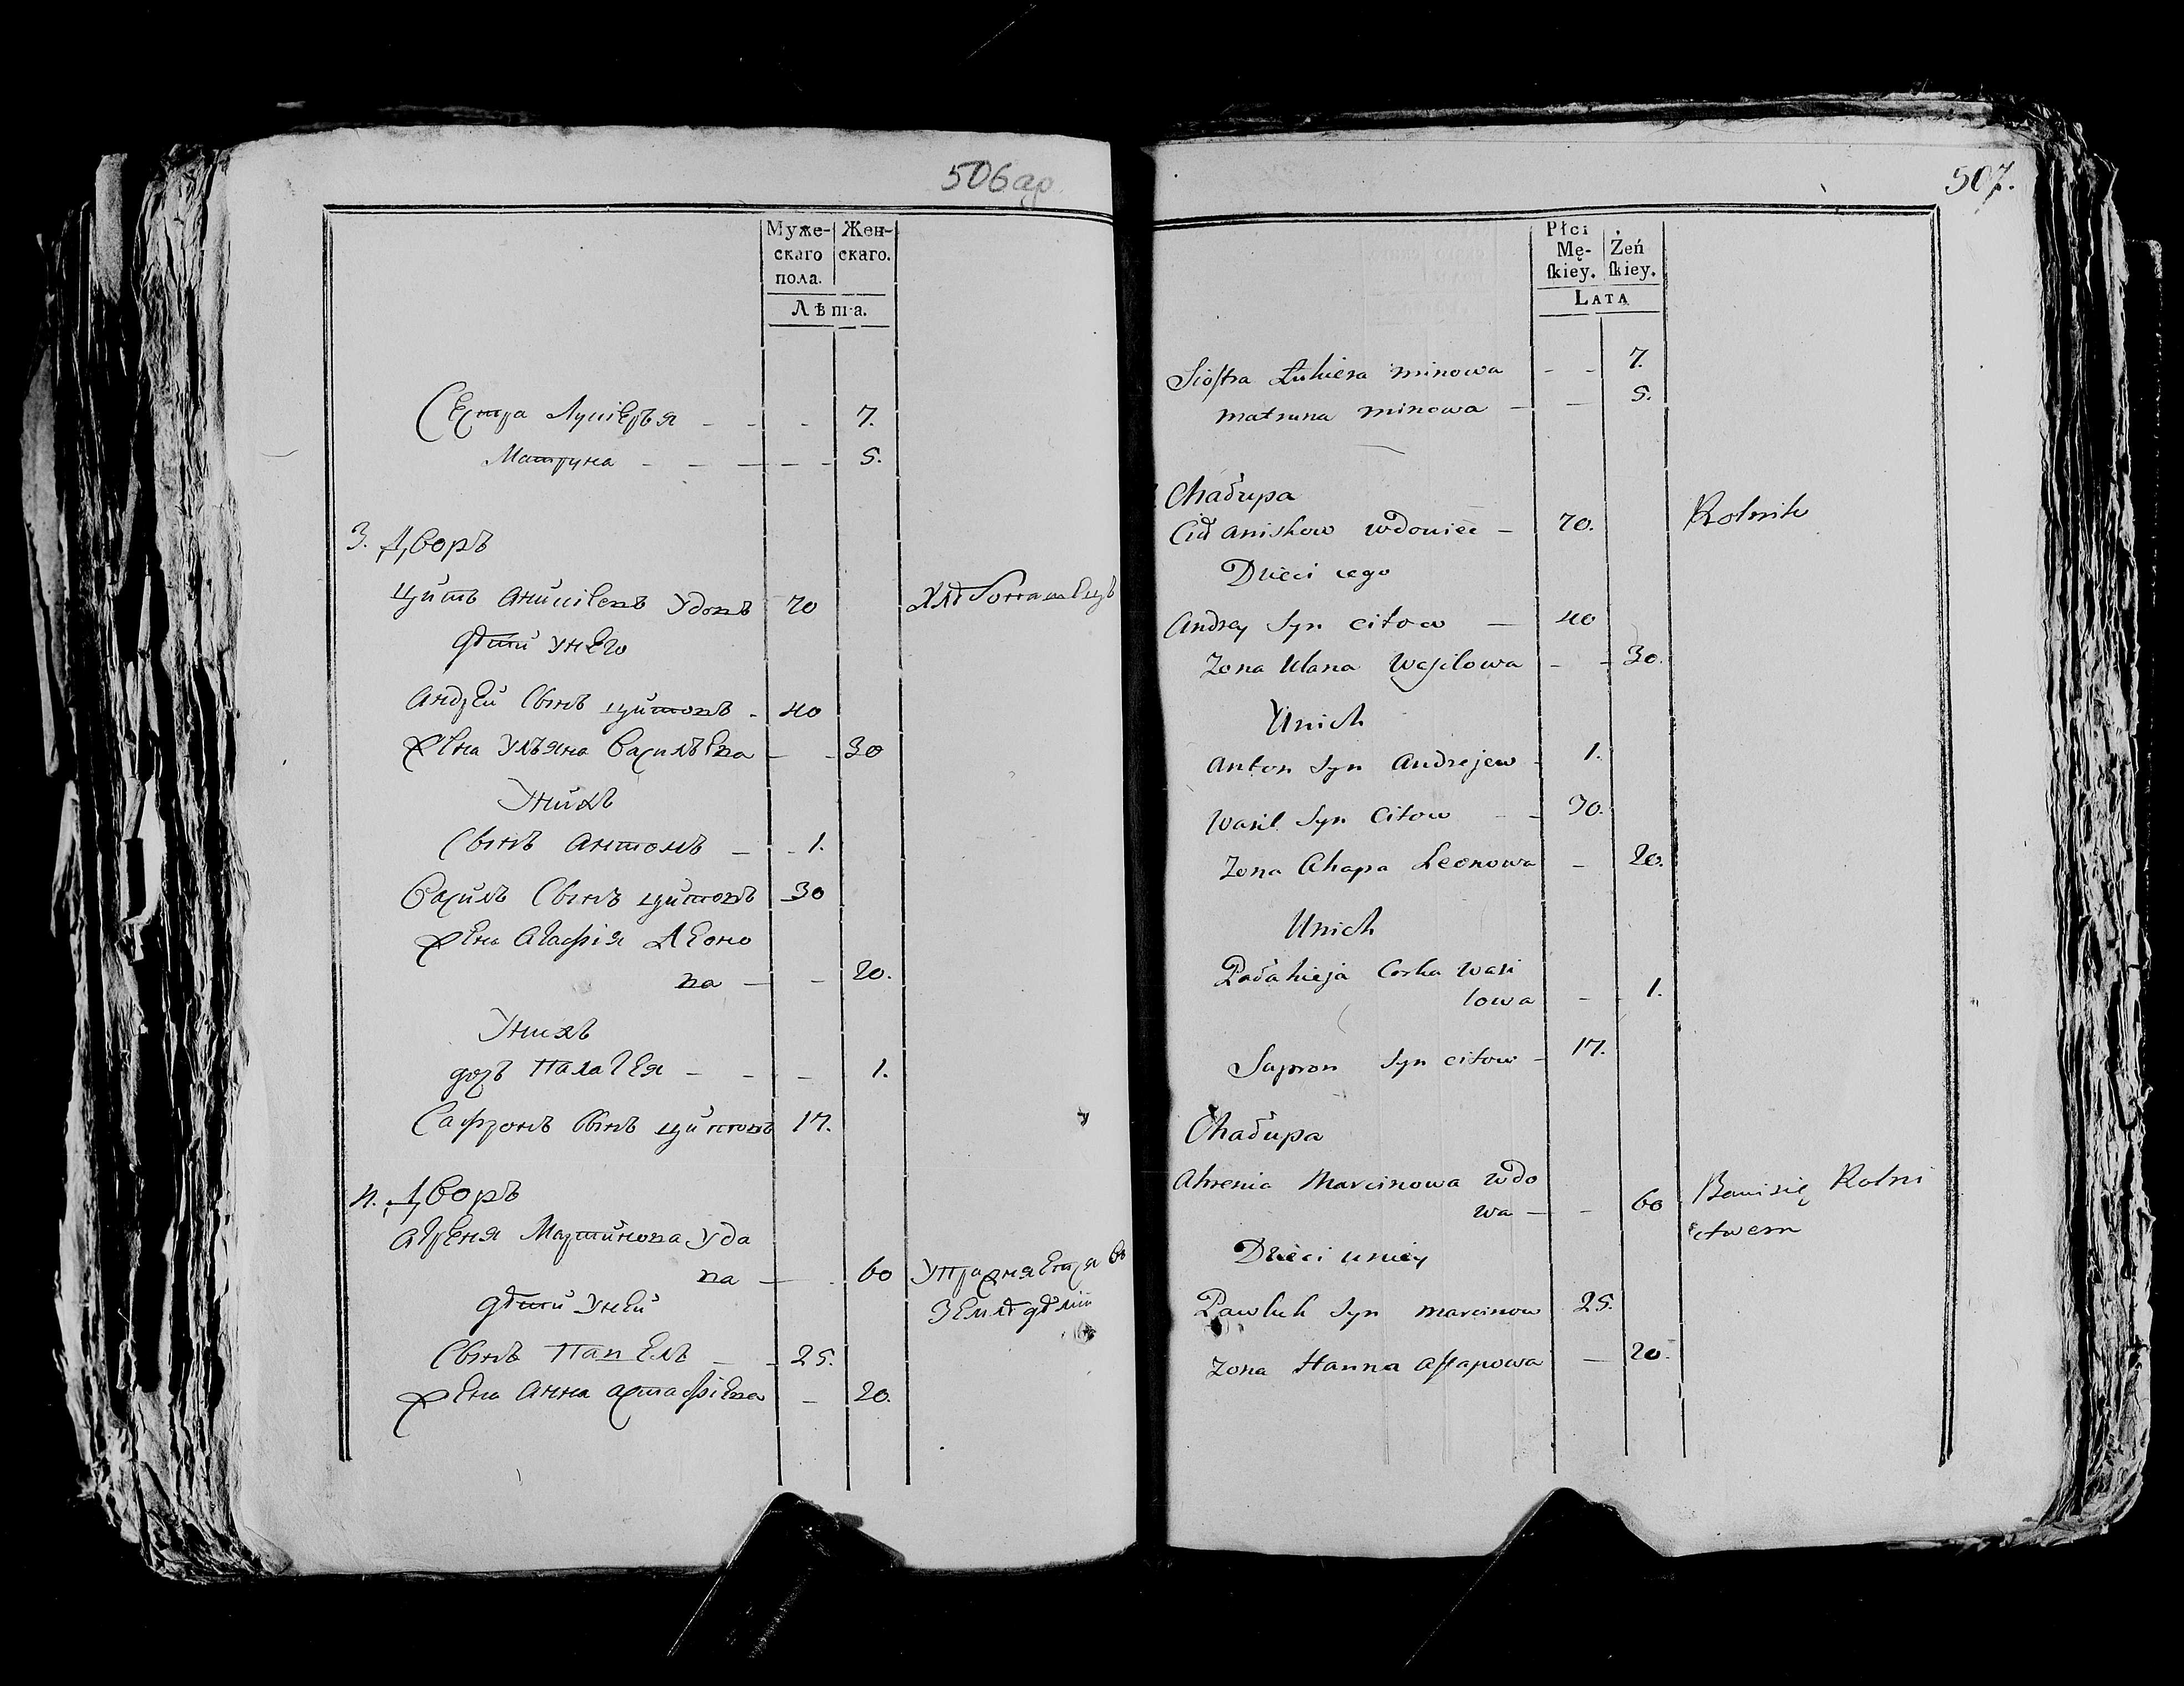 506 ар
Муже-
скаго
пола.
Жен-
скаго.
Лѣта.
Сестра Лукіерья - - - 7.
Матруна - - - - - 5.
3. Дворъ
Цитъ Аникіевъ Удовъ 70 Хлѣбопашецъ
Дѣти Унего
Андрей Сынъ цитовъ - 40
Жена Ульяна Васильева - - 30
Унихъ
Сынъ Антонъ - - 1.
Василь Сынъ цитовъ 30
Жена Агафія Леоно
ва - - 20.
Унихъ
дочь Палагея - - - 1.
Сафронъ Сынъ цитовъ 17.
4. Дворъ
Агреня Мартинова Удо
ва - - 60 Упражняется въ
Дѣти Уней Земледѣліи
Сынъ Павелъ - - 25.
Жена Анна Астафіева - 20.
507.
Płci
Mę-
ſkiey.
Żeń
ſkiey.
LATA
Siostra Łukiera minowa - - 7.
matruna minowa - - 5.
Chałupa
Cit aniskow wdowiec - 70. Rolnik
Dzieci iego
Andrey Syn citow - 40
Zona Ulana Wasilowa - - 30.
Unich
Anton Syn Andrejew - 1.
Wasil Syn Citow - - 30.
Zona Ahapa Leonowa - 20.
Unich
Pałahieja Corka Wasi
lowa - - 1.
Sapron Syn citow - 17.
Chałupa
Ahrenia Marcinowa wdo
wa - - 60 Bawi się Rolni
ctwem
Dzieci uniey
Pawluk Syn marcinow 25.
Zona Hanna Astapowa - 20.